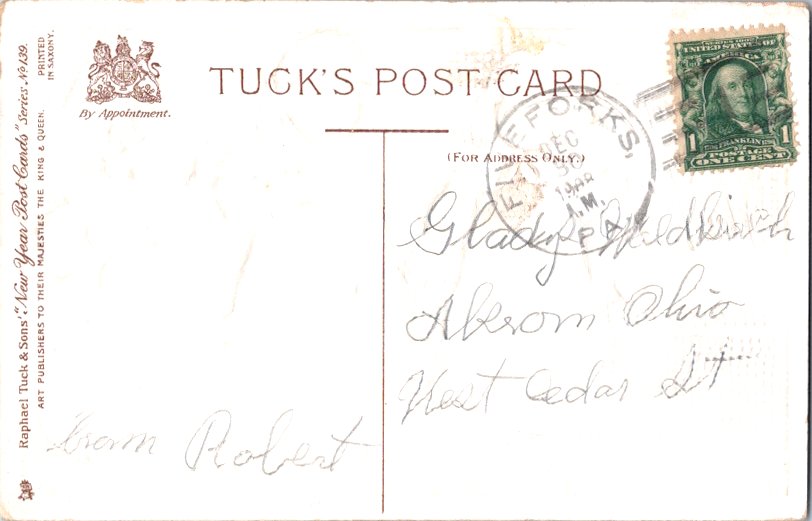 TUCK'S POST CARD
By Appointment.
(FOR ADDRESS ONLY.)
Raphael Tuck & Sons' "New Year Post Cards" Series No 139.
ART PUBLISHERS TO THEIR MAJESTIES THE KING & QUEEN.
PRINTED
IN SAXONY.
FIVE FORKS,
DEC
30
A.M.
PA.
SERIES 1902
UNITED STATES OF
AMERICA
FRANKLIN
1 POSTAGE 1
ONE CENT
Gladys
Akrom Ohio
West Cedar St
from Robert